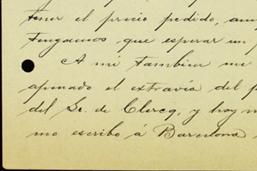 tener el precio pedido, aun
tengamos que esperar un
A mi tambien me
apenado el extravío del p
del Sr. de Clercq, y hoy m
mo escribo á Barcelona